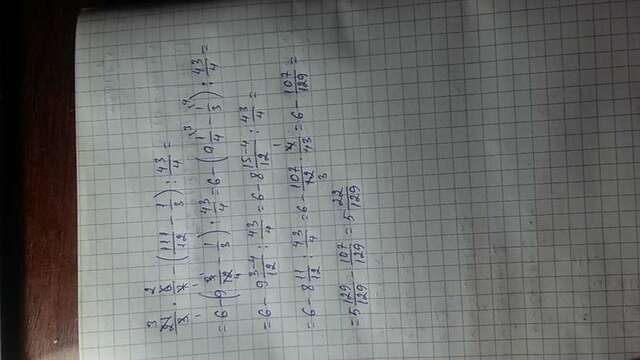 21/8 · 8/7 - (111/12 - 1/3) : 43/4 =
= 6 - (9 3/12 - 1/3) : 43/4 = 6 - (9 1/4 - 1/3) : 43/4 =
= 6 - 9 3-4/12 : 43/4 = 6 - 8 15-4/12 : 43/4 =
= 6 - 8 11/12 : 43/4 = 6 - 107/12 · 4/43 = 6 - 107/129 =
= 5 129/129 - 107/129 = 5 22/129